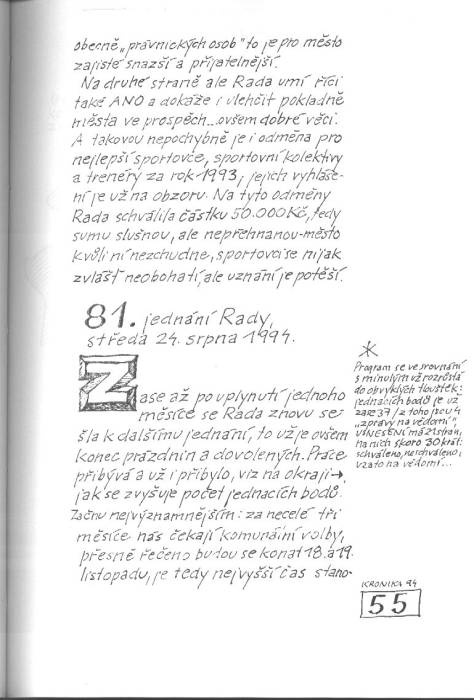 obecně „právnických osob" to je pro město
zajisté snazší a přijatelnější.
Na druhé straně ale Rada umí říci
také ANO a dokáže i ulehčit pokladně
města ve prospěch...ovšem dobré věci.
A takovou nepochybně je i odměna pro
nejlepší sportovce, sportovní kolektivy
a trenéry za rok 1993, jejich vyhláše-
ní je už na obzoru. Na tyto odměny
Rada schválila částku 50.000 Kč, tedy
sumu slušnou, ale nepřehnanou-město
kvůli ní nezchudne, sportovci se nijak
zvlášť neobohatí, ale uznání je potěší.
81. jednání Rady,
středa 24. srpna 1994.
Zase až po uplynutí jednoho
měsíce se Rada znovu se-
šla k dalšímu jednání, to už je ovšem
konec prázdnin a dovolených. Práce
přibývá a už i přibylo, viz na okraji→,
jak se zvyšuje počet jednacích bodů.
Začnu nejvýznamnějším: za necelé tři
měsíce nás čekají komunální volby,
přesně řečeno budou se konat 18. a 19.
listopadu, je tedy nejvyšší čas stano-
*
Program se ve srovnání
s minulým už rozrůstá
do obvyklých tlouštěk:
jednacích bodů je už
zase 37 / z toho jsou 4
„zprávy na vědomí",
USNESENÍ má 21 stran,
na nich skoro 30 krát:
schváleno, neschváleno i
vzato na vědomí...
KRONIKA 94
55